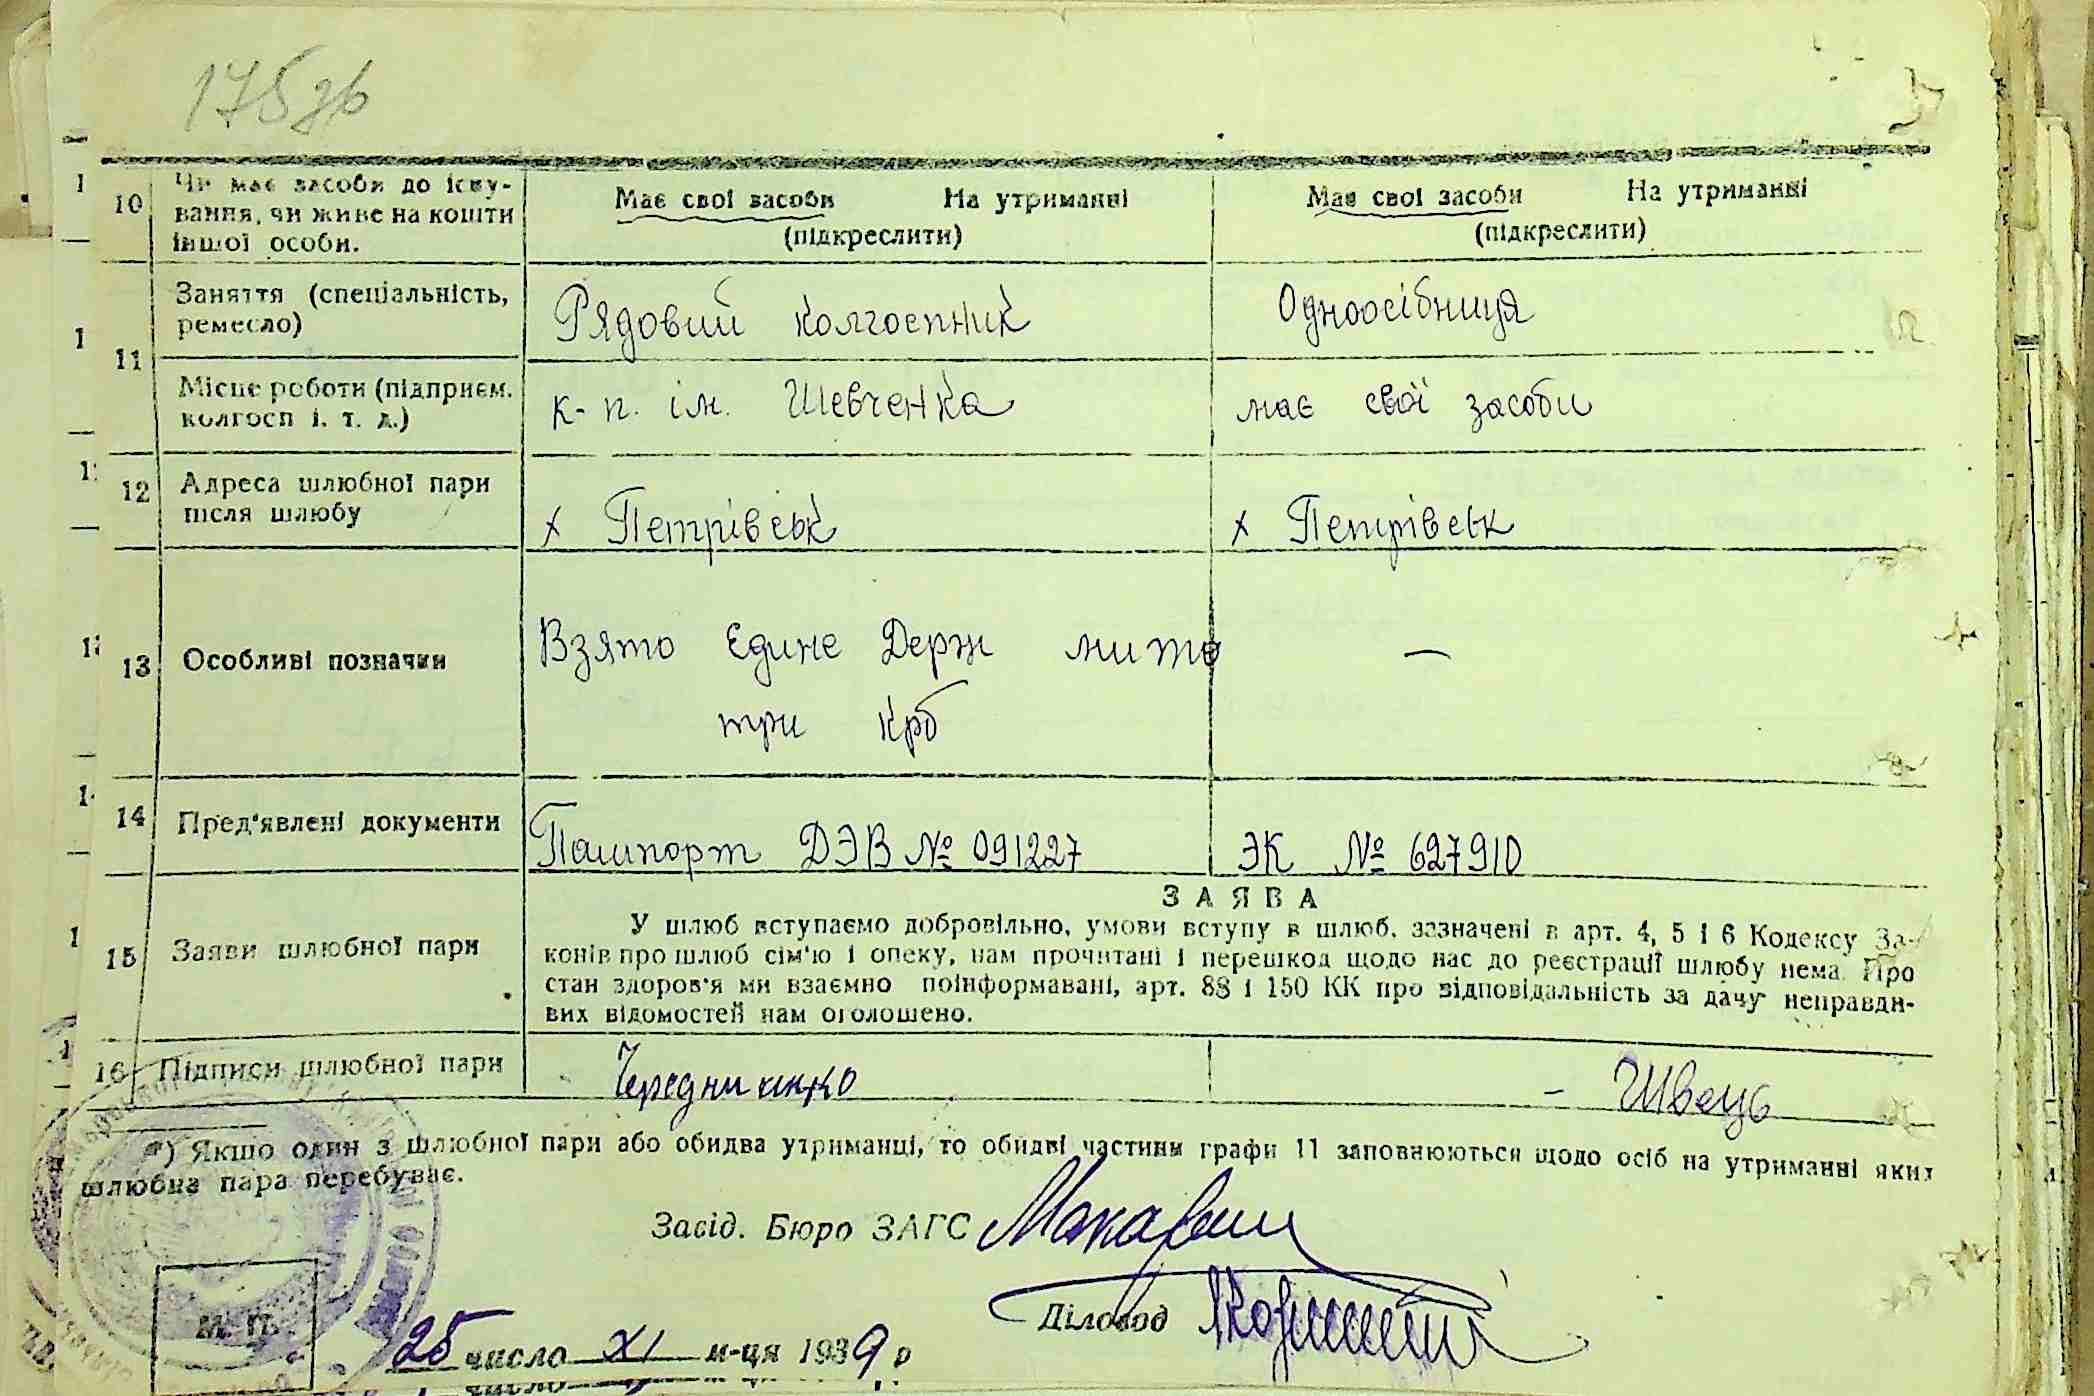 175зв
10 Чи має засоби до існу-
вання, чи живе на кошти
іншої особи.
Має свої засоби На утриманні
(підкреслити)
Має свої засоби На утриманні
(підкреслити)
11 Заняття (спеціальність,
ремесло)
Рядовий колгоспник
Одноосібниця
Місце роботи (підприєм.
колгосп і. т. д.)
к-п. ім. Шевченка
має свої засоби
12 Адреса шлюбної пари
після шлюбу
х Петрівськ
х Петрівськ
13 Особливі позначки
Взято Єдине Держ мито
три крб
—
14 Пред'явлені документи
Пашпорт ДЭВ № 091227
ЭК № 627910
15 Заяви шлюбної пари
ЗАЯВА
У шлюб вступаємо добровільно, умови вступу в шлюб, зазначені в арт. 4, 5 і 6 Кодексу За-
конів про шлюб сім'ю і опеку, нам прочитані і перешкод щодо нас до реєстрації шлюбу нема. Про
стан здоров'я ми взаємно поінформавані, арт. 88 і 150 КК про відповідальність за дачу неправди-
вих відомостей нам оголошено.
16 Підписи шлюбної пари
Чередниченко
– Швець
*) Якщо один з шлюбної пари або обидва утриманці, то обидві частини графи 11 заповнюються щодо осіб на утриманні яких
шлюбна пара перебуває.
Завід. Бюро ЗАГС
Діловод
М. П.
25 число XI м-ця 1939 р
число